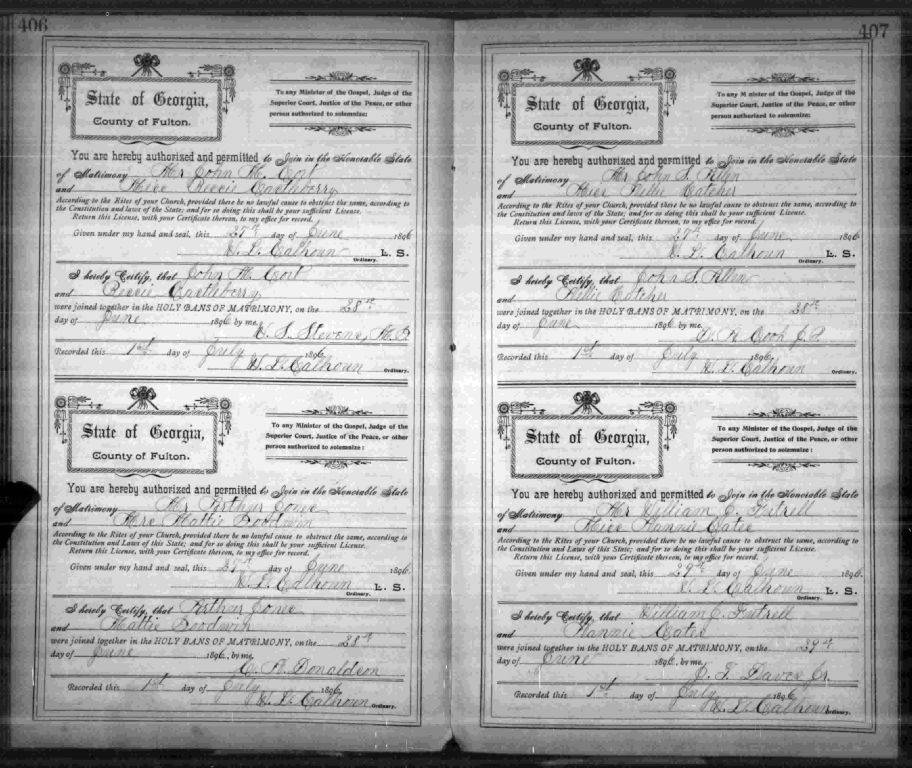 406
State of Georgia,
County of Fulton.
To any Minister of the Gospel, Judge of the
Superior Court, Justice of the Peace, or other
person authorized to solemnize:
You are hereby authorized and permitted to Join in the Honorable State
of Matrimony Mr John H. Cort
and Miss Reecie Castleberry
According to the Rites of your Church, provided there be no lawful cause to obstruct the same, according to
the Constitution and laws of the State; and for so doing this shall be your sufficient License.
Return this License, with your Certificate thereon, to my office for record.
Given under my hand and seal, this 27th day of June 1896
W. L. Calhoun L. S.
Ordinary.
I hereby Certify, that John H. Cort
and Reecie Castleberry
were joined together in the HOLY BANS OF MATRIMONY, on the 28th
day of June 1896 by me,
S. Stevens, M. G.
Recorded this 1st day of July 1896
W. L. Calhoun Ordinary.
State of Georgia,
County of Fulton.
To any Minister of the Gospel, Judge of the
Superior Court, Justice of the Peace, or other
person authorized to solemnize:
You are hereby authorized and permitted to Join in the Honorable State
of Matrimony Mr Arthur Jones
and Mrs Mattie Goodwin
According to the Rites of your Church, provided there be no lawful cause to obstruct the same, according to
the Constitution and Laws of this State; and for so doing this shall be your sufficient License.
Return this License, with your Certificate thereon, to my office for record.
Given under my hand and seal, this 27th day of June 1896
W. L. Calhoun L. S.
Ordinary.
I hereby Certify, that Arthur Jones
and Mattie Goodwin
were joined together in the HOLY BANS OF MATRIMONY, on the 28th
day of June 1896, by me,
Donaldson
Recorded this 1st day of July 1896
W. L. Calhoun Ordinary.
407
State of Georgia,
County of Fulton.
To any Minister of the Gospel, Judge of the
Superior Court, Justice of the Peace, or other
person authorized to solemnize:
You are hereby authorized and permitted to Join in the Honorable State
of Matrimony Mr John S. Allen
and Miss Catcher
According to the Rites of your Church, provided there be no lawful cause to obstruct the same, according to
the Constitution and laws of the State; and for so doing this shall be your sufficient License.
Return this License, with your Certificate thereon, to my office for record.
Given under my hand and seal, this 27th day of June 1896
W. L. Calhoun L. S.
Ordinary.
I hereby Certify, that John S. Allen
and Catcher
were joined together in the HOLY BANS OF MATRIMONY, on the 28th
day of June 1896, by me,
Cook J. P.
Recorded this 1st day of July 1896,
W. L. Calhoun Ordinary.
State of Georgia,
County of Fulton.
To any Minister of the Gospel, Judge of the
Superior Court, Justice of the Peace, or other
person authorized to solemnize:
You are hereby authorized and permitted to Join in the Honorable State
of Matrimony Mr William C. Futrell
and Miss Nannie Cates
According to the Rites of your Church, provided there be no lawful cause to obstruct the same, according to
the Constitution and Laws of this State; and for so doing this shall be your sufficient License.
Return this License, with your Certificate thereon, to my office for record.
Given under my hand and seal, this 29th day of June 1896.
W. L. Calhoun L. S.
Ordinary.
I hereby Certify, that William C. Futrell
and Nannie Cates
were joined together in the HOLY BANS OF MATRIMONY, on the 29th
day of June 1896, by me,
Davis Jr.
Recorded this 1st day of July 1896
W. L. Calhoun Ordinary.